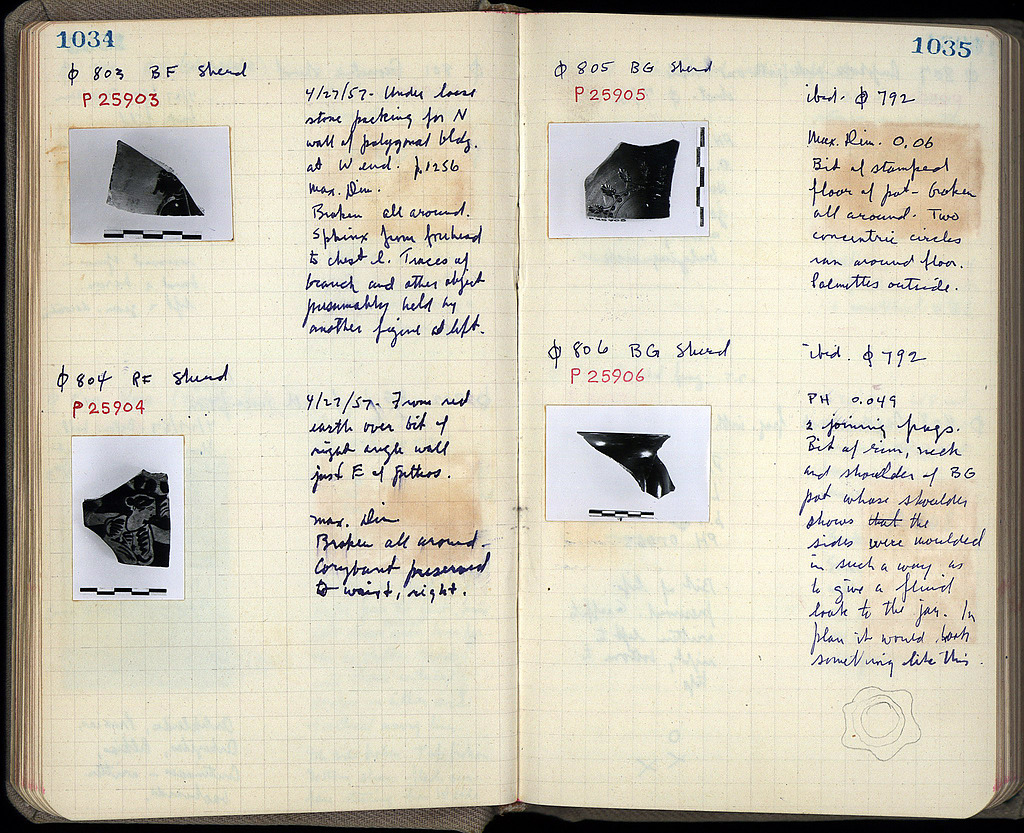 1034
φ 803 BF Sherd
P 25903
4/27/57 - Under loose
stone packing for N
wall of polygonal bldg.
at W end. p. 1256
Max. Dim.
Broken all around.
Sphinx from forehead
to chest l. Traces of
branch and other object
presumably held by
another figure at left.
φ 804 RF Sherd
P 25904
4/27/57. From red
earth over bit of
right angle wall
just E of
Max. Dim
Broken all around -
Corybant preserved
to waist, right.
1035
φ 805 BG Sherd
P 25905
ibid. φ 792
Max. Dim. 0.06
Bit of stamped
floor of pot - broken
all around. Two
concentric circles
ran around floor.
Palmettes outside.
φ 806 BG Sherd
P 25906
ibid. φ 792
PH 0.049
2 joining frags.
Bit of rim, neck
and shoulder of BG
pot whose shoulder
shows that the
sides were moulded
in such a way as
to give a fluid
look to the jar. In
plan it would look
something like this.